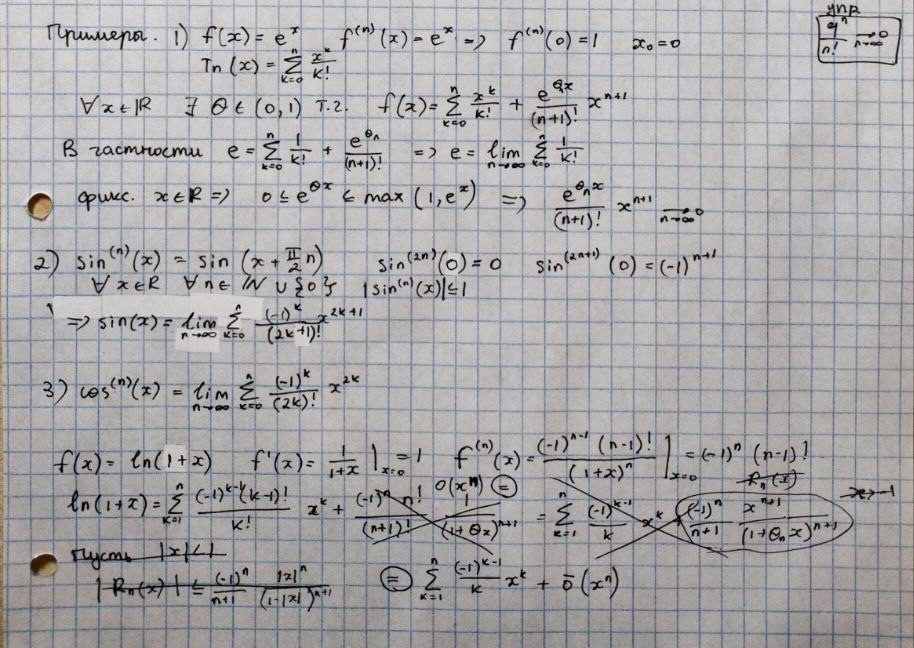 упр.
qⁿ/n! →_{n→∞} 0
Примеры. 1) f(x) = eˣ f⁽ⁿ⁾(x) = eˣ => f⁽ⁿ⁾(0) = 1 x₀ = 0
Tn(x) = Σ_{k=0}^{n} xᵏ/k!
∀x∈ℝ ∃ Θ∈(0,1) т.г. f(x) = Σ_{k=0}^{n} xᵏ/k! + e^{Θx}/(n+1)! xⁿ⁺¹
В частности e = Σ_{k=0}^{n} 1/k! + e^{Θn}/(n+1)! => e = lim_{n→∞} Σ_{k=0}^{n} 1/k!
фикс. x∈ℝ => 0 ≤ e^{Θx} ≤ max(1, eˣ) => e^{Θₙx}/(n+1)! xⁿ⁺¹ →_{n→∞} 0
2) sin⁽ⁿ⁾(x) = sin(x + π/2 n) sin⁽²ⁿ⁾(0) = 0 sin⁽²ⁿ⁺¹⁾(0) = (-1)ⁿ⁺¹
∀x∈ℝ ∀n∈ℕ∪{0} |sin⁽ⁿ⁾(x)| ≤ 1
=> sin(x) = lim_{n→∞} Σ_{k=0}^{n} (-1)ᵏ/(2k+1)! x²ᵏ⁺¹
3) cos⁽ⁿ⁾(x) = lim_{n→∞} Σ_{k=0}^{n} (-1)ᵏ/(2k)! x²ᵏ
f(x) = ln(1+x) f'(x) = 1/(1+x) |_{x=0} = 1 f⁽ⁿ⁾(x) = (-1)ⁿ⁻¹(n-1)!/(1+x)ⁿ |_{x=0} = (-1)ⁿ(n-1)!
ō(xⁿ) = Rₙ(x) x→-1
ln(1+x) = Σ_{k=1}^{n} (-1)ᵏ⁻ᵏ(k-1)!/k! xᵏ + (-1)ⁿ n!/(n+1)! 1/(1+Θₓ)ⁿ⁺¹ = Σ_{k=1}^{n} (-1)ᵏ⁻¹/k xᵏ (-1)ⁿ/(n+1) xⁿ⁺¹/(1+Θₙx)ⁿ⁺¹
Пусть |x|<1
|Rₙ(x)| ≤ (-1)ⁿ/(n+1) |x|ⁿ/(1-|x|)ⁿ⁺¹ = Σ_{k=1}^{n} (-1)ᵏ⁻¹/k xᵏ + ō(xⁿ)